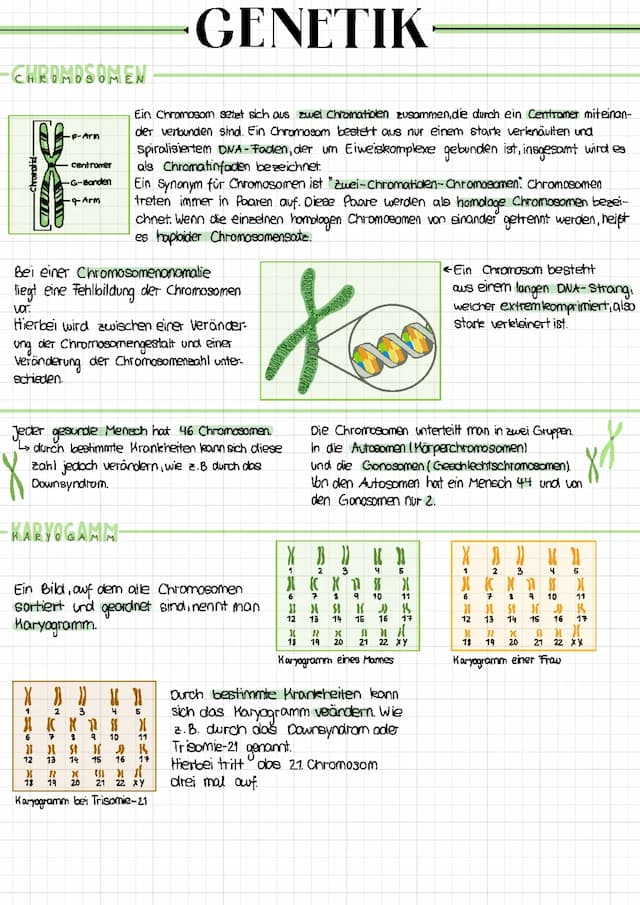 GENETIK
CHROMOSOMEN
CHROMOSOMEN
Ein Chromosom setzt sich aus zwei Chromatiden zusammen, die durch ein Centromer miteinan-
der verbunden sind. Ein Chromosom besteht aus nur einem stark verknäulten und
spiralisiertem DNA-Faden, der um Eiweiskomplexe gebunden ist, insgesamt wird es
als Chromatinfaden bezeichnet.
Ein Synonym für Chromosomen ist "Zwei-Chromatiden-Chromosomen". Chromosomen
treten immer in Paaren auf. Diese Paare werden als homologe Chromosomen bezei-
chnet. Wenn die einzelnen homologen Chromosomen von einander getrennt werden, heißt
es haploider Chromosomensatz.
Chromatid
p-Arm
Centromer
G-Banden
q-Arm
Bei einer Chromosomenanomalie
liegt eine Fehlbildung der Chromosomen
vor.
Hierbei wird zwischen einer Veränder-
ung der Chromosomengestalt und einer
Veränderung der Chromosomenzahl unter-
schieden.
←Ein Chromosom besteht
aus einem langen DNA-Strang,
welcher extrem komprimiert, also
stark verkleinert ist.
Jeder gesunde Mensch hat 46 Chromosomen.
↳ durch bestimmte Krankheiten kann sich diese
zahl jedoch verändern, wie z.B durch das
Downsyndrom.
Die Chromosomen unterteilt man in zwei Gruppen.
In die Autosomen (Körperchromosomen)
und die Gonosomen (Geschlechtschromosomen).
Von den Autosomen hat ein Mensch 44 und von
den Gonosomen nur 2.
KARYOGAMM
KARYOGAMM
Ein Bild, auf dem alle Chromosomen
sortiert und geordnet sind, nennt man
Karyogramm.
1 2 3 4 5
6 7 8 9 10 11
12 13 14 15 16 17
18 19 20 21 22 XY
Karyogramm eines Mannes
1 2 3 4 5
6 7 8 9 10 11
12 13 14 15 16 17
18 19 20 21 22 XX
Karyogramm einer Frau
1 2 3 4 5
6 7 8 9 10 11
12 13 14 15 16 17
18 19 20 21 22 XY
Karyogramm bei Trisomie-21
Durch bestimmte Krankheiten kann
sich das Karyogramm veändern. Wie
z.B. durch das Downsyndrom oder
Trisomie-21 genannt.
Hierbei tritt das 21. Chromosom
drei mal auf.